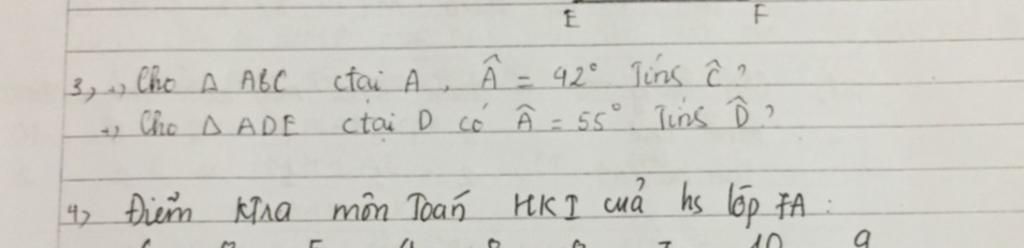 E F
3, +, Cho △ ABC ctai A, Â = 42° Tính Ĉ?
+, Cho △ ADE ctai D có Â = 55°. Tính D̂?
4, Điểm KTra môn Toán HKI cuả hs lớp 7A:
10 9